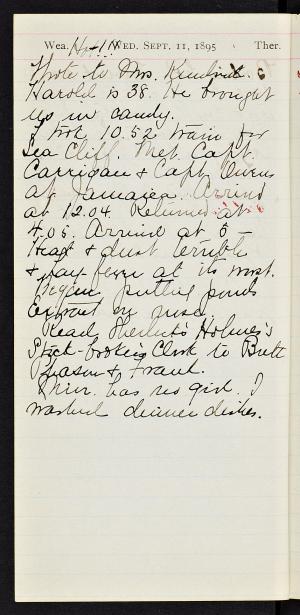 Wea. Hot!! WED. SEPT. 11, 1895 Ther.
Wrote to Mrs.
Harold is 38. He brought
us in candy.
I took 10.52 train for
Sea Cliff. Met Capt.
Carrigan & Capt.
at Jamaica. Arrived
at 12.04. Returned at
4.05. Arrived at 5-
Heat & dust terrible
& hay fever at its worst.
Began putting ponds
Extract up nose.
Read Sherlock Holmes's
Stock-broking Clerk to Britt
& Frank.
has no girl. I
washed dinner dishes.